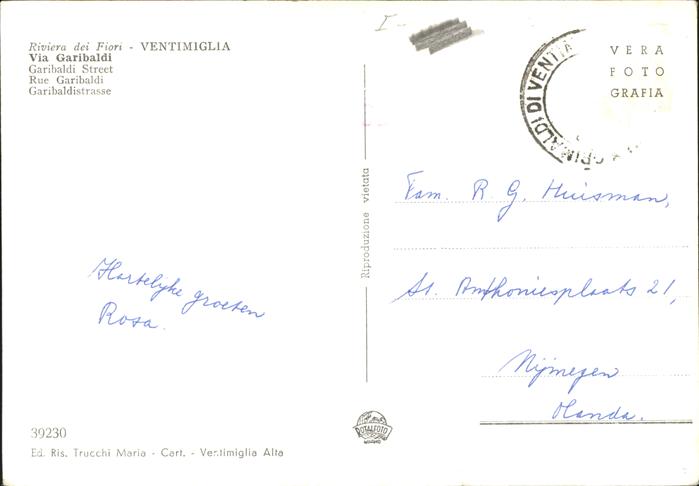 Riviera dei Fiori - VENTIMIGLIA
Via Garibaldi
Garibaldi Street
Rue Garibaldi
Garibaldistrasse
I -
VERA
FOTO
GRAFIA
GRIMALDI DI VENTIM
Riproduzione vietata
Fam. R. G. Huisman,
St. Anthoniesplaats 21,
Nijmegen
Olanda.
Hartelijke groeten
Rosa.
39230
Ed. Ris. Trucchi Maria - Cart. - Ventimiglia Alta
ROTALFOTO
MILANO